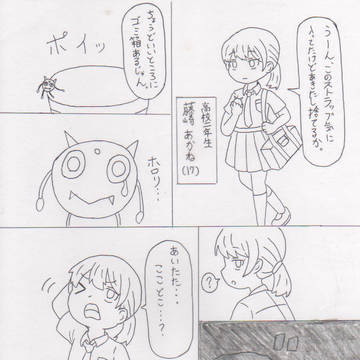 うーん、このストラップ気に
入ってたけどあきたし捨てるか。
高校二年生
藤崎 あかね
(17)
ちょうどいいところに
ゴミ箱あるじゃん。
ポイッ
ホロリ・・・
?
あいたた・・・
ここどこ・・・?